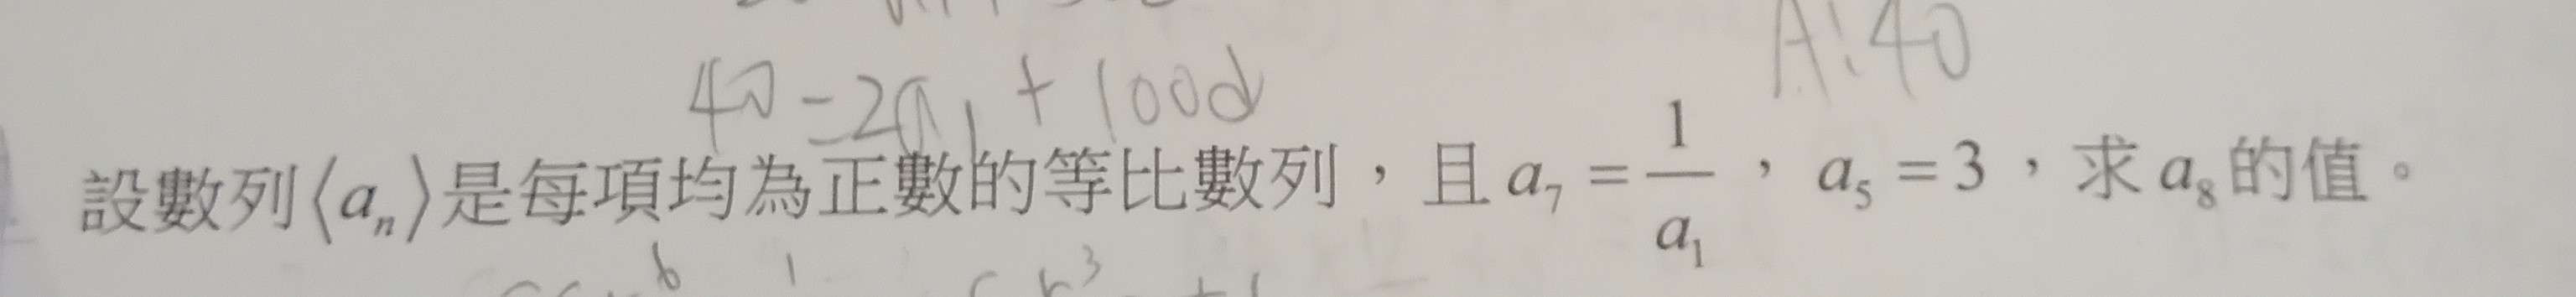 A:40
40=2a₁+100d
設數列⟨aₙ⟩是每項均為正數的等比數列，且a₇=1/a₁，a₅=3，求a₈的值。